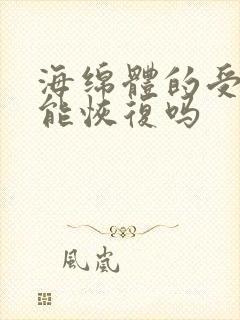 海绵體的受
能恢復吗
風嵐